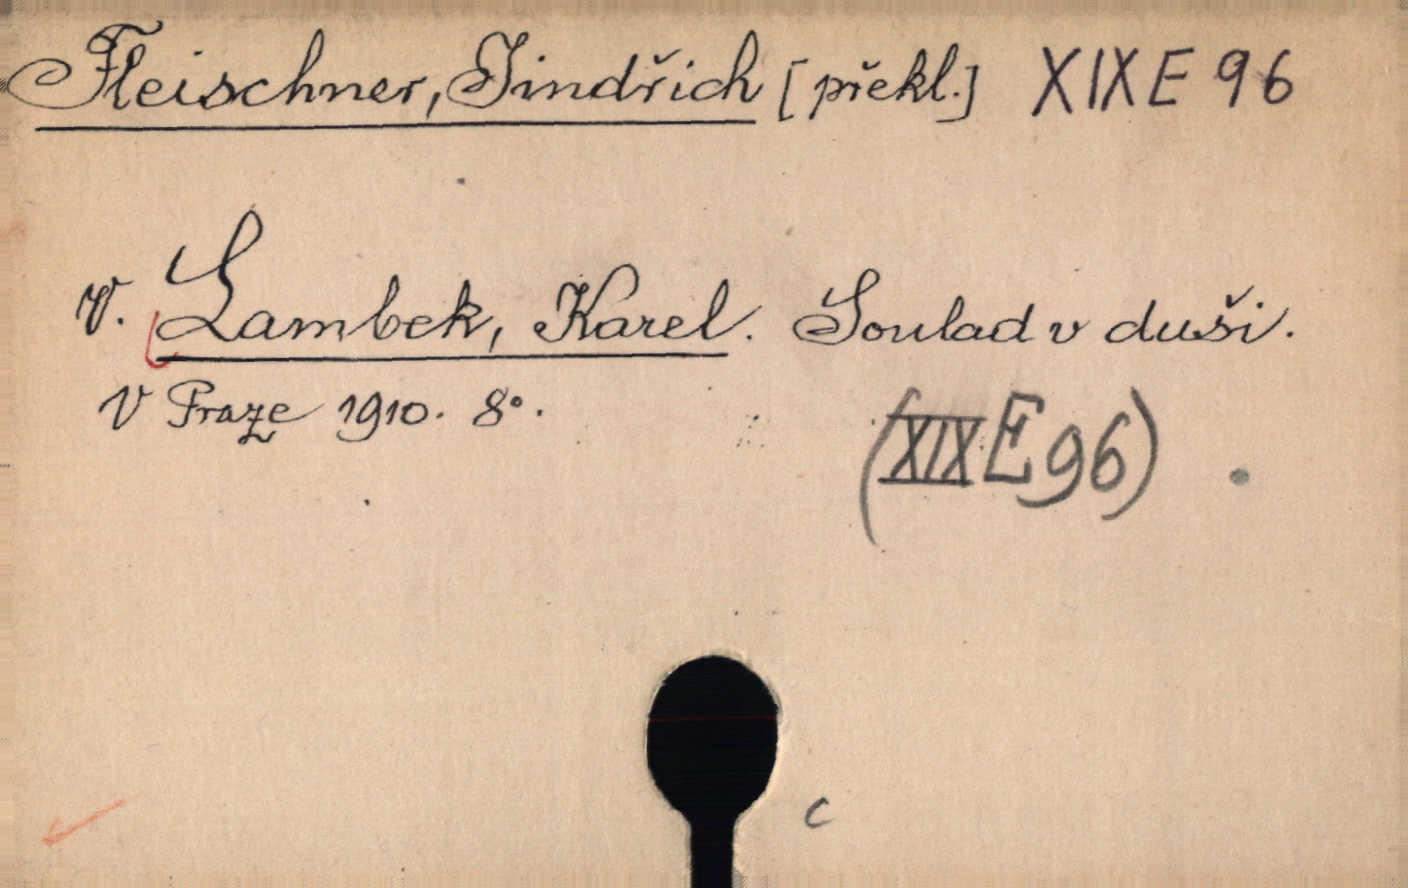 Fleischner, Jindřich [překl.] XIX E 96
v. Lambek, Karel. Soulad v duši.
V Praze 1910. 8°.
(XIX E 96)
c